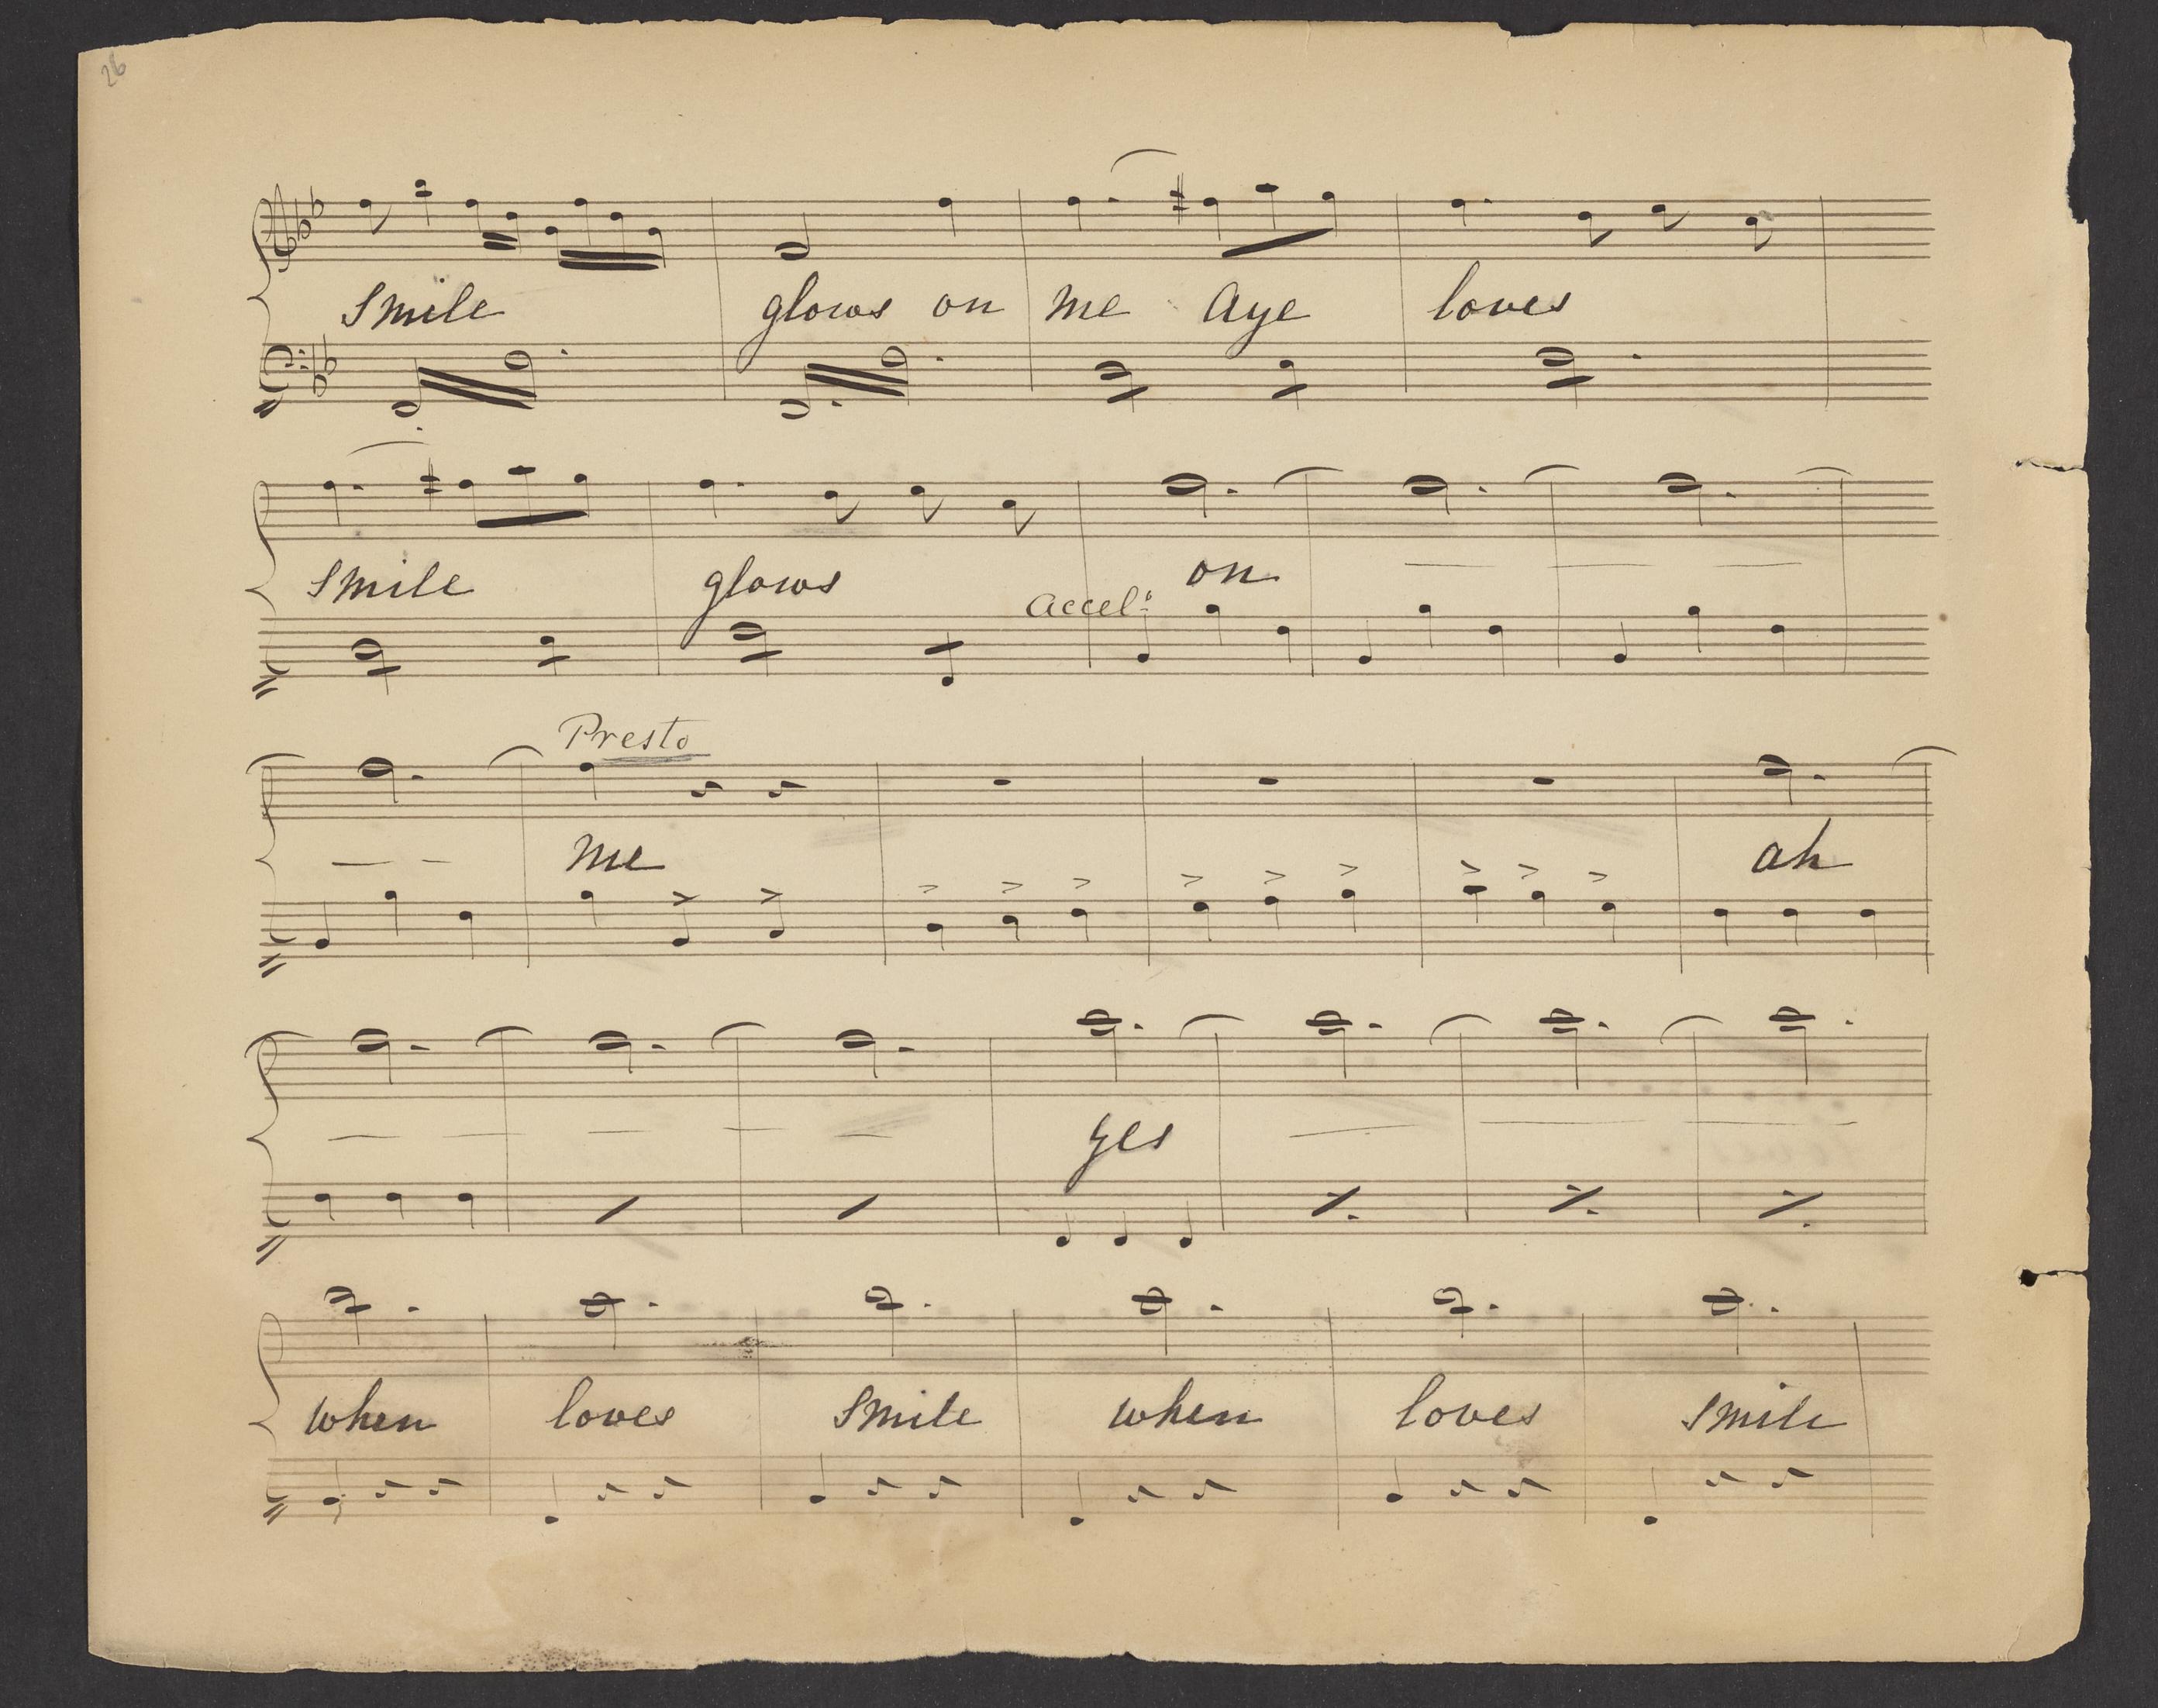 26
Smile glows on me Aye loves
Smile glows on
Accelo
Presto
me ah
yes
when loves smile when loves smile